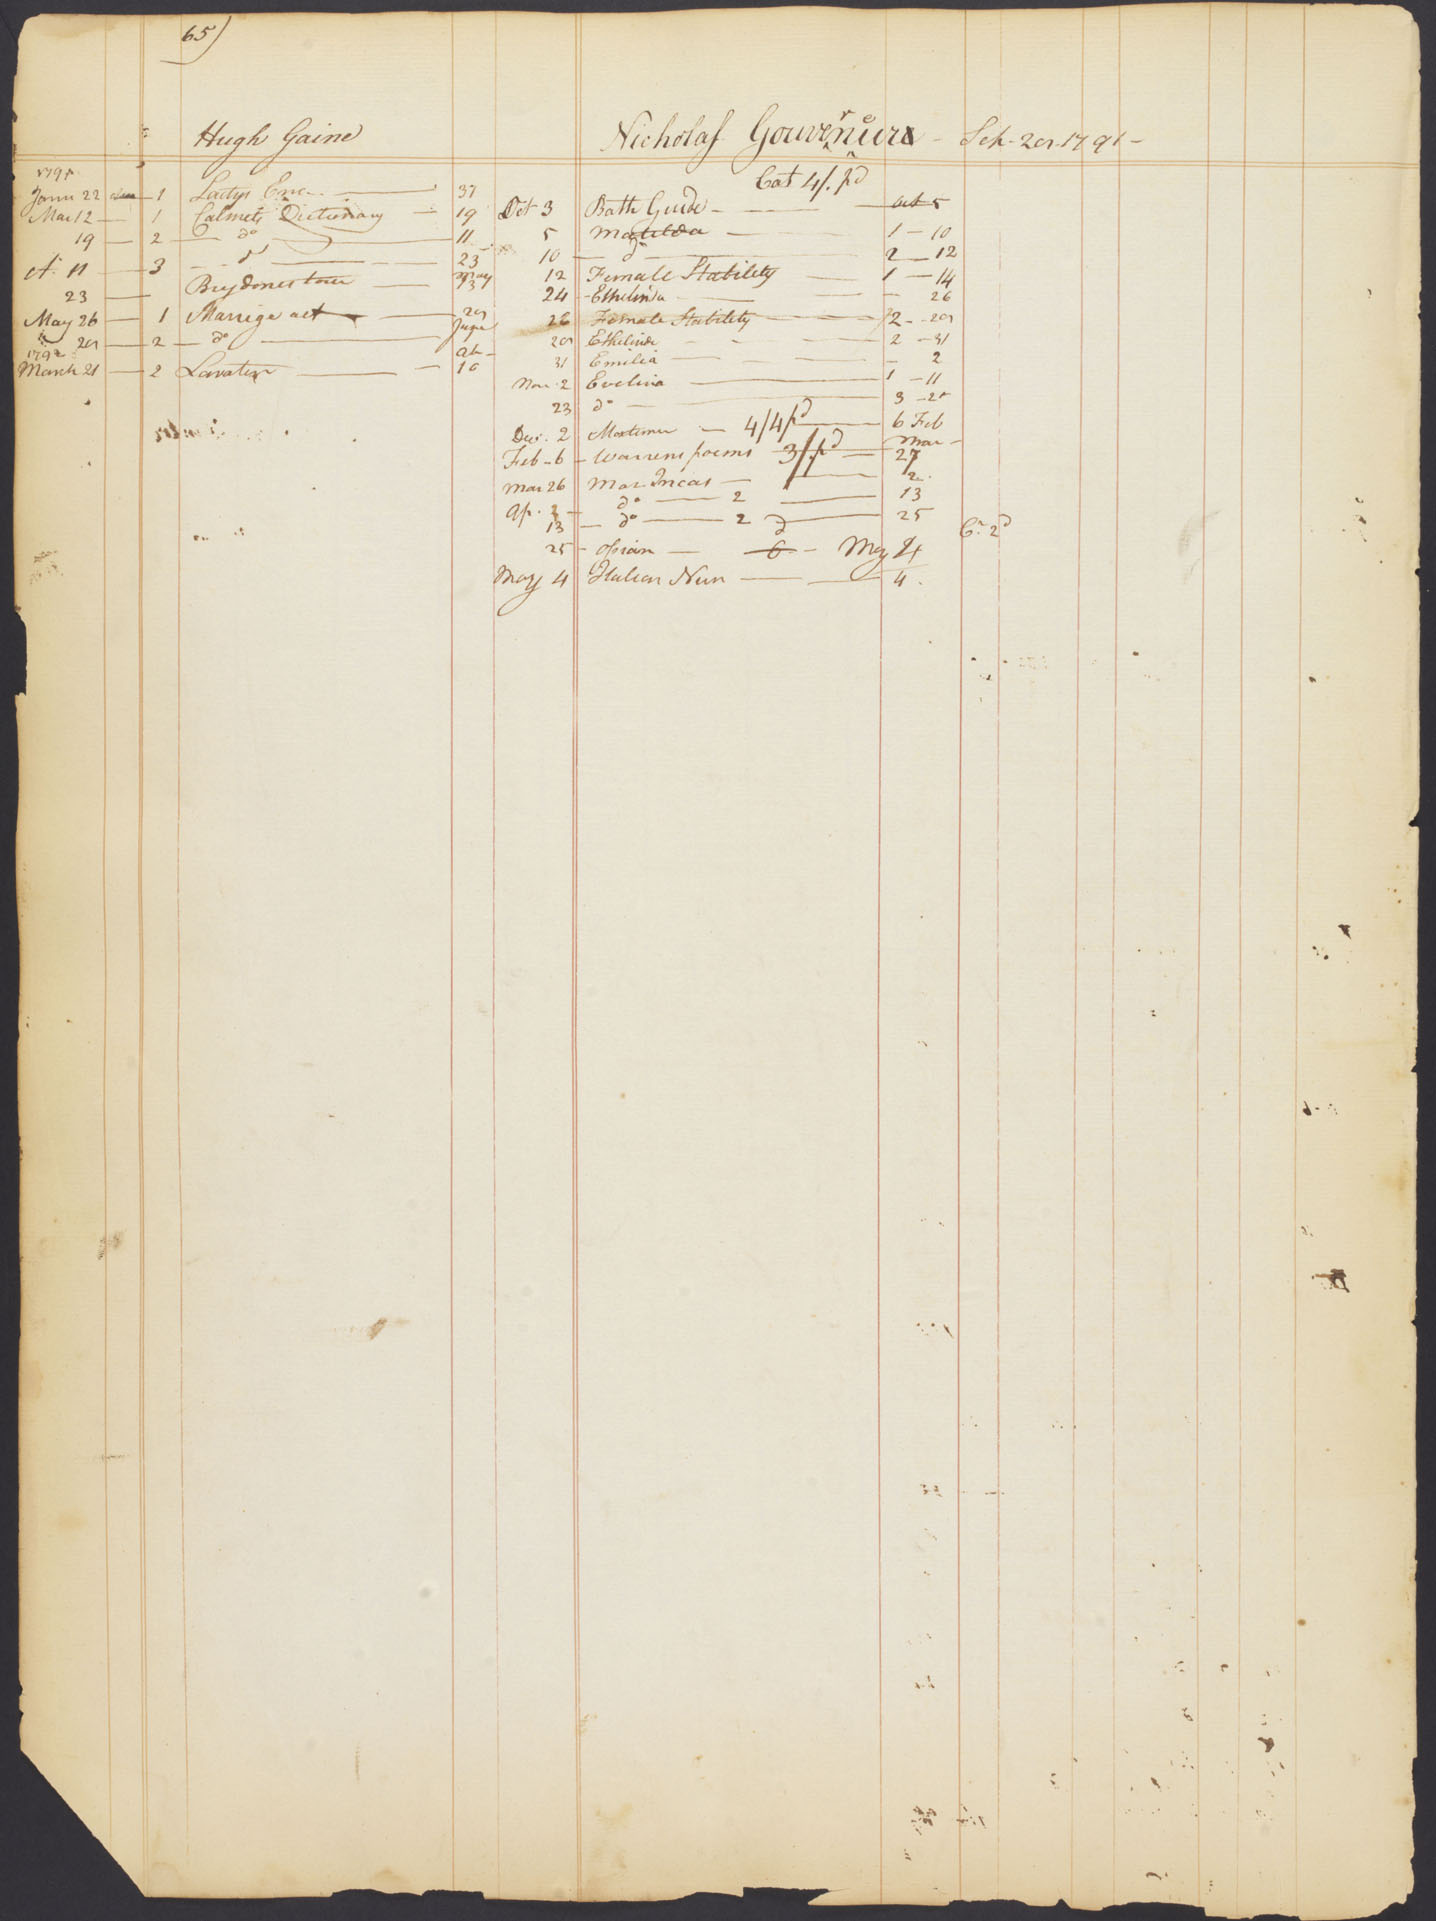 65)
Hugh Gaine
1791
Janu 22 — 1 Ladys Enc. — 37
Mar 12 — 1 Calmets Dictionary — 19
19 — 2 — do — 11
A. 11 — 3 — do — 23
23 — Brydones tour — May 13
May 26 — 1 Marrige act — 29
29 — 2 — do — June
1792
March 21 — 2 Lavater — 16
Nicholas Gouverneur - Sep. 29 1791 -
Cat 4/. pd
Oct 3 Bath Guide — oct 5
5 Matilda — 1 — 10
10 — do — 2 — 12
12 Female Stability — 1 — 14
24 - Ethelinda — 26
26 Female Stability — 2 - 29
29 Ethelinde — 2 - 31
31 Emilia — 2
Nov. 2 Evelina — 1 - 11
23 do — 3 - 2
Dec. 2 Mortimer — 4/4 pd — 6 Feb
Feb - 6 - Warrens poems 3/. pd — Mar - 27
Mar 26 Mar. Incas — 2
Ap. 2 — do — 2 — 13
13 — do — 2 — 25
Cr. 2d
25 - Ossian — 6 d — May 4
May 4 Italian Nun — 4.